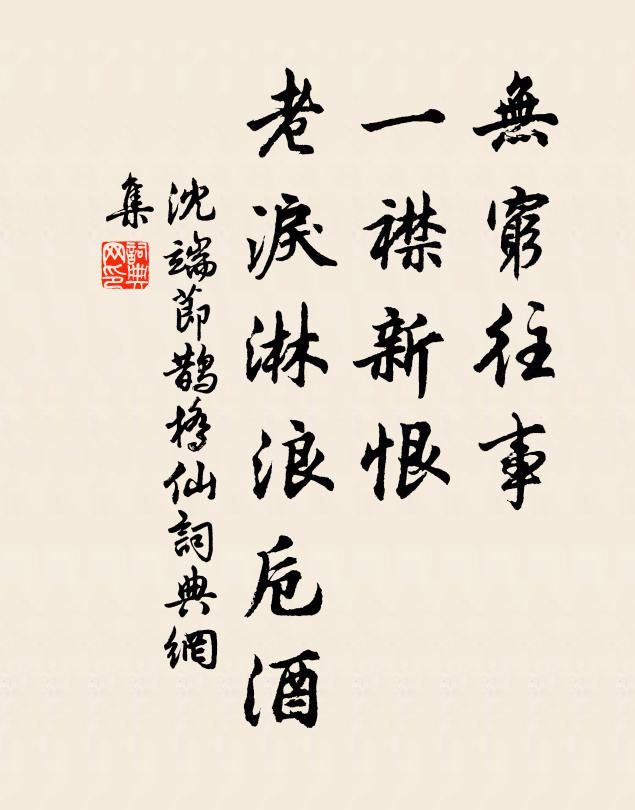 無窮往事
一襟新恨
老淚淋浪卮酒
沈端節鵲橋仙詞典網
集
詞典網印